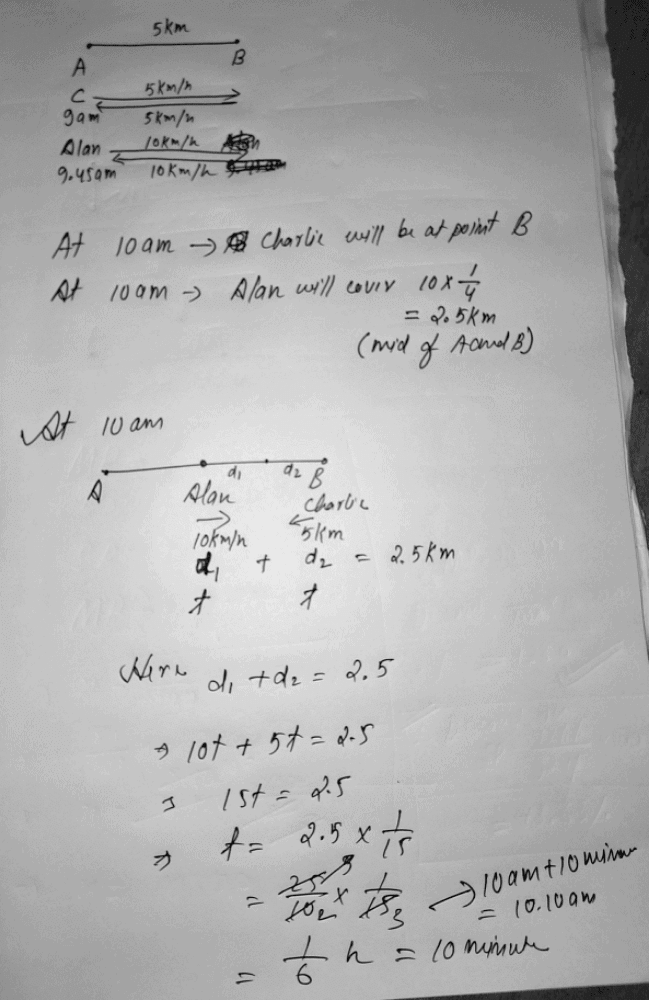 5km
A B
C 5km/h
9am 5km/h
Alan 10km/h
9.45am 10km/h
At 10am → Charlie will be at point B
At 10am → Alan will cover 10 x 1/4
= 2.5km
(mid of A and B)
At 10am
A d₁ d₂ B
Alan Charlie
→ ←
10km/h 5km
d₁ + d₂ = 2.5km
t t
Here d₁ + d₂ = 2.5
⇒ 10t + 5t = 2.5
⇒ 15t = 2.5
⇒ t = 2.5 x 1/15
= 25 5/10 2 x 1/15 3 → 10am + 10 minute
= 10.10am
= 1/6 h = 10 minute